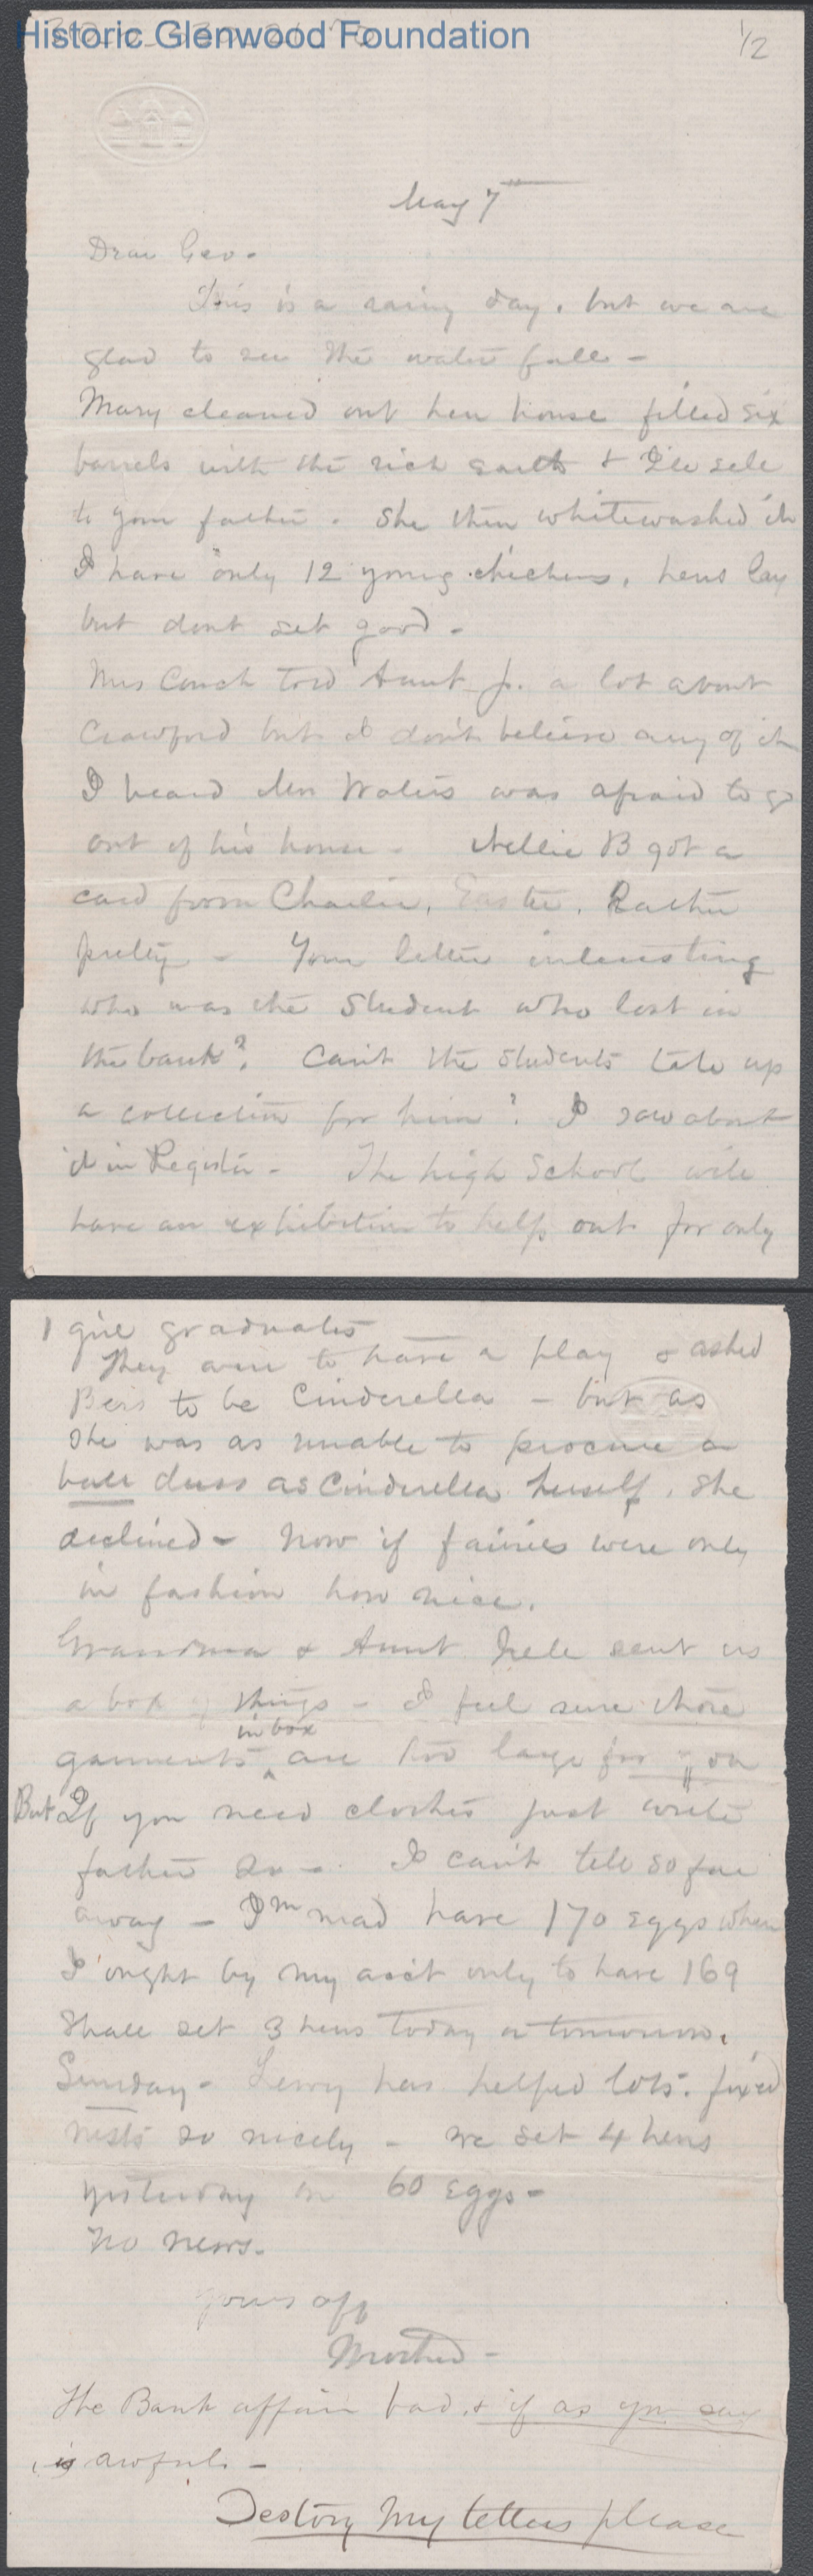 Historic Glenwood Foundation
1/2
May 7th
Dear Geo -
This is a rainy day, but we are
glad to see the water fall -
Mary cleaned out hen house filled six
barrels with the rich earth & I'le sell
to your father. She then whitewashed it
I have only 12 young chickens, hens lay
but dont set good -
Mrs Couch told Aunt J. a lot about
Crawford but I don't believe any of it
I heard Mr Waters was afraid to go
out of his house - Nellie B got a
card from Charlie, Easter. Rather
pretty - Your letter interesting
who was the student who lost in
the bank? Can't the students take up
a collection for him? I saw about
it in Register - The high School will
have an exhibition to help out for only
1 girl graduates
They were to have a play & asked
Bess to be Cinderella - but as
she was as unable to procure a
ball dress as Cinderella herself, she
declined - Now if fairies were only
in fashion how nice.
Grandma & Aunt sent us
a box of things - I feel sure those
in box
garments ^ are too large for you
But If you need clothes just write
father so -. I can't tell so far
away - I'm mad have 170 eggs when
I ought by my acc't only to have 169
Shall set 3 hens today or tomorrow.
Sunday - has helped lots. fixed
nests so nicely - we set 4 hens
yesterday on 60 eggs -
No news.
Yours aff
Mother -
The Bank affair bad, & if as you say
is awful -
Destroy My letters please